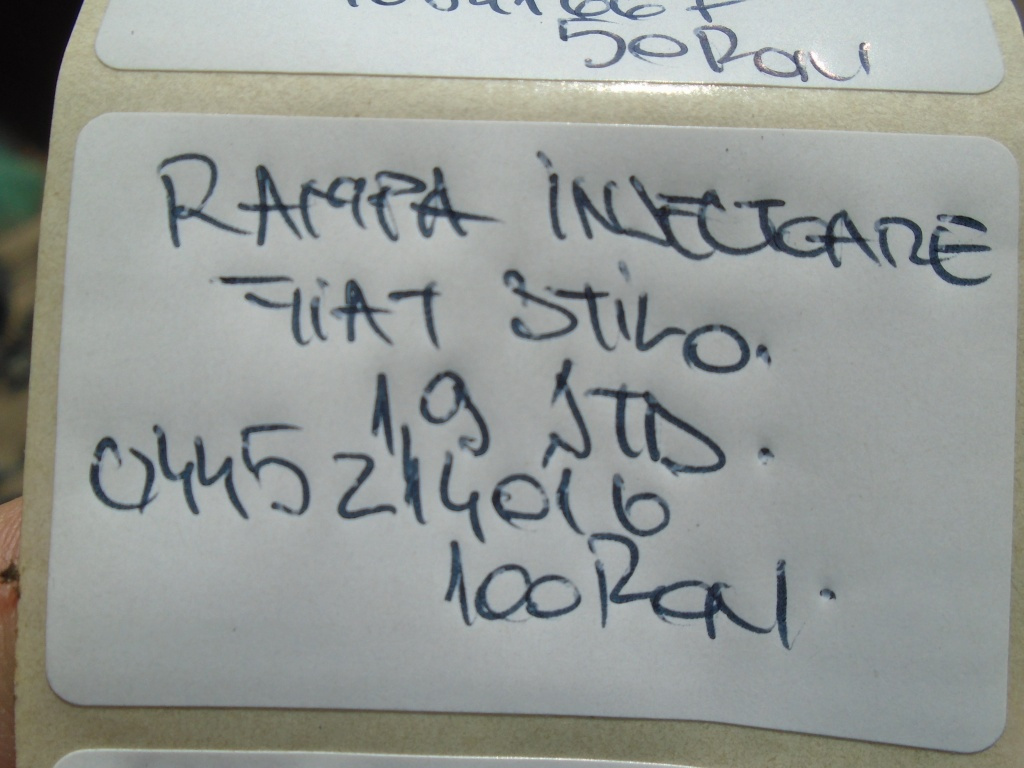 50 RON
RAMPA INJECTOARE
FIAT STILO.
1 9 JTD.
0445214016
100 RON.